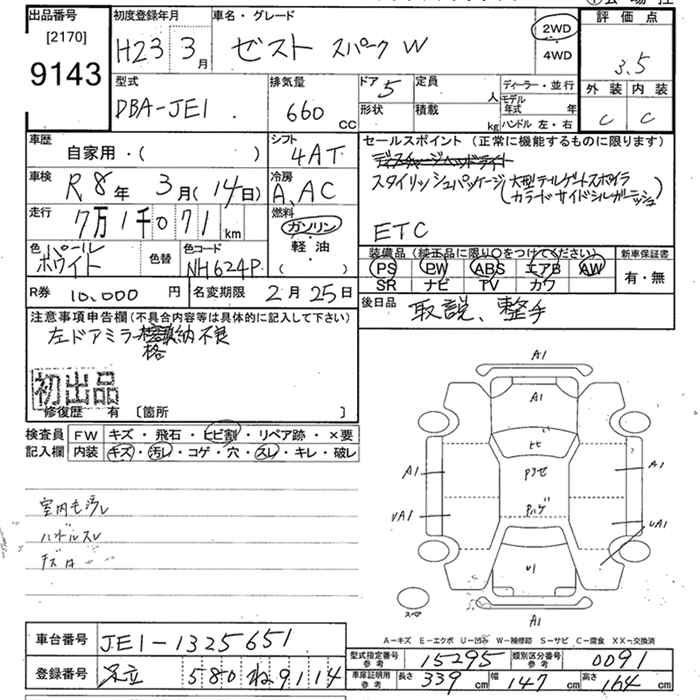 出品番号
[2170]
9143
初度登録年月
H23 3月
車名・グレード
ゼスト スパーク W
2WD
4WD
評価点
3.5
外装 内装
C C
型式
DBA-JE1
排気量
660 cc
ドア 5
定員 人
形状
積載 kg
ディーラー・並行
モデル年式 年
ハンドル 左・右
車歴
自家用・( )
シフト
4AT
車検
R8年 3月(14日)
冷房
A.AC
走行
7万1千071 km
燃料
ガソリン
軽油・
( )
色 パールホワイト
色替
色コード
NH624P
R券 10,000 円
名変期限 2月25日
セールスポイント (正常に機能するものに限ります)
ディスチャージヘッドライト
スタイリッシュパッケージ(大型テールゲートスポイラ
カラードサイドシルガーニッシュ)
ETC
装備品 (純正品に限り○をつけてください)
PS PW ABS エアB AW
SR ナビ TV カワ
新車保証書
有・無
後日品 取説、整手
注意事項申告欄(不具合内容等は具体的に記入して下さい)
左ドアミラー格納不良
初出品
修復歴 有 〔箇所 〕
検査員記入欄
FW キズ・飛石・ヒビ割・リペア跡・×要
内装 キズ・汚レ・コゲ・穴・スレ・キレ・破レ
室内も汚レ
ハンドルスレ
A1
A1
ヒビ
A1
A1
UA1
UA1
U1
A1
スペア
A-キズ E-エクボ U-凹み W-補修跡 S-サビ C-腐食 XX-交換済
車台番号 JE1-1325651
登録番号 足立 580 ね 9114
型式指定番号 参考 15295
類別区分番号 参考 0091
車庫証明記載 参考 長さ 339 cm 幅 147 cm 高さ 164 cm